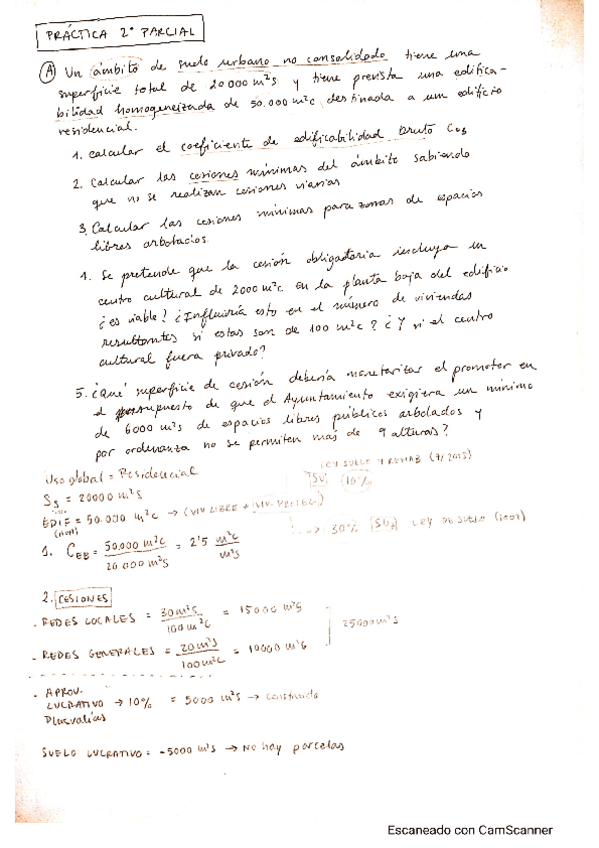 PRÁCTICA 2º PARCIAL
A Un ámbito de suelo urbano no consolidado tiene una
superficie total de 20000 m²s y tiene prevista una edifica-
bilidad homogeneizada de 50.000 m²c, destinada a un edificio
residencial.
1. Calcular el coeficiente de edificabilidad bruto CEB
2. Calcular las cesiones mínimas del ámbito sabiendo
que no se realizan cesiones viarias
3. Calcular las cesiones mínimas para zonas de espacios
libres arbolados.
4. Se pretende que la cesión obligatoria incluya un
centro cultural de 2000 m²c en la planta baja del edificio
¿es viable? ¿Influiría esto en el número de viviendas
resultantes si estas son de 100 m²c? ¿Y si el centro
cultural fuera privado?
5. ¿Qué superficie de cesión debería monetarizar el promotor en
el supuesto de que el Ayuntamiento exigiera un mínimo
de 6000 m²s de espacios libres públicos arbolados y
por ordenanza no se permiten más de 9 alturas?
Uso global = Residencial
LEY SUELO Y REHAB (7/2015)
SS = 20000 m²s
10%
EDIF = 50.000 m²c → (VIV LIBRE +
30% LEY DE SUELO (2007)
1. CEB = 50.000 m²c / 20.000 m²s = 2'5 m²c / m²s
2. CESIONES
- REDES LOCALES = 30m²s / 100m²c = 15000 m²s
25000 m²s
- REDES GENERALES = 20m²s / 100m²c = 10000 m²s
- APROV.
LUCRATIVO → 10% = 5000 m²s → Construida
Plusvalías
SUELO LUCRATIVO = -5000 m²s → No hay parcelas
Escaneado con CamScanner